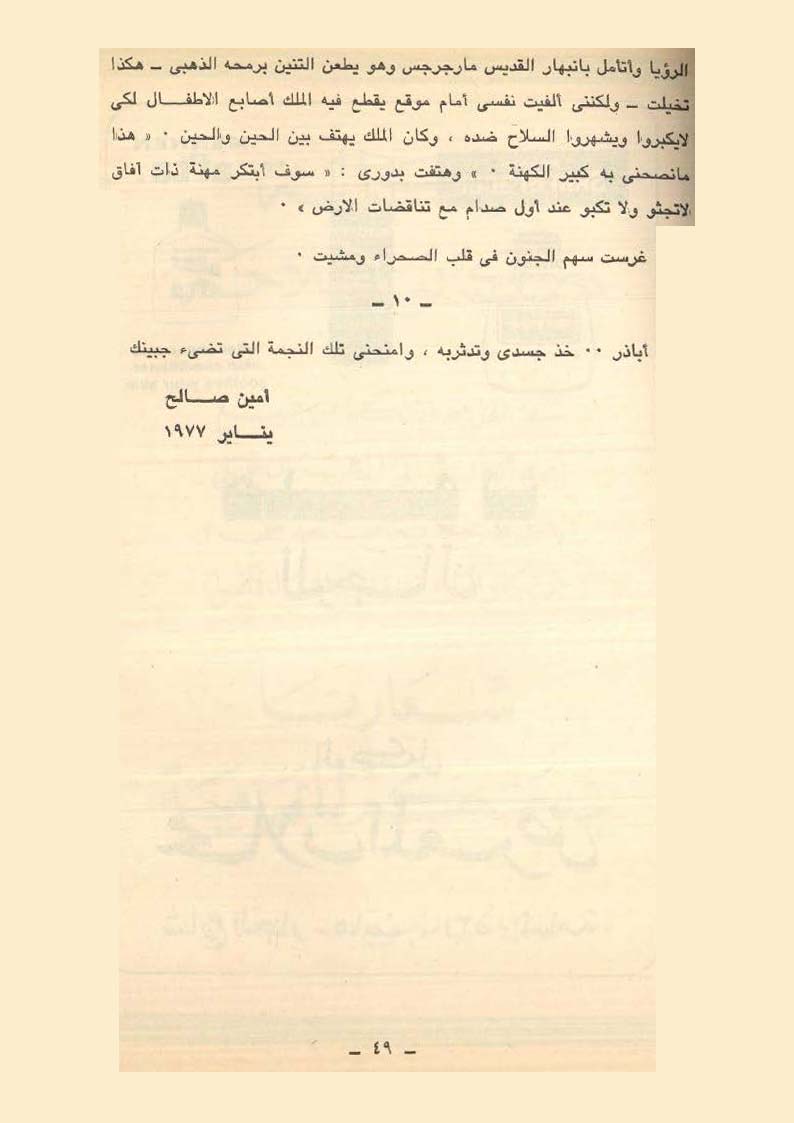 الرؤيا وأتأمل بانبهار القديس مارجرجس وهو يطعن التنين برمحه الذهبى ــ هكذا
تخيلت ــ ولكننى ألفيت نفسى أمام موقع يقطع فيه الملك أصابع الاطفــال لكى
لايكبروا ويشهروا السلاح ضده ، وكان الملك يهتف بين الحين والحين ٠ « هذا
مانصحنى به كبير الكهنة ٠ » وهتفت بدورى : « سوف أبتكر مهنة ذات آفاق
لاتجثو ولا تكبو عند أول صدام مع تناقضات الارض » ٠
غرست سهم الجنون فى قلب الصحراء ومشيت ٠
ــ ١٠ ــ
أباذر ٠٠ خذ جسدى وتدثربه ، وامنحنى تلك النجمة التى تضىء جبينك
أمين صـــالح
ينـــاير ١٩٧٧
ــ ٤٩ ــ